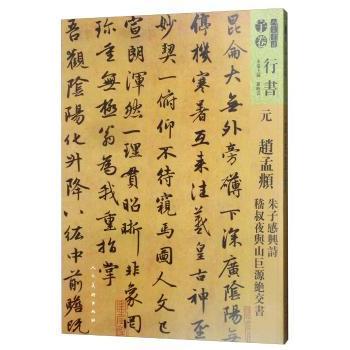 行書
元
趙孟頫
朱子感興詩
嵇叔夜與山巨源絕交書
崑崙大無外旁礴下深廣陰陽無
停機寒暑互來往皇羲古神聖
妙契一俯仰不待窺馬圖人文已
宣朗渾然一理貫昭晰非象罔
珍重無極翁為我重指掌
吾觀陰陽化升降八紘中前瞻既
人民美術出版社